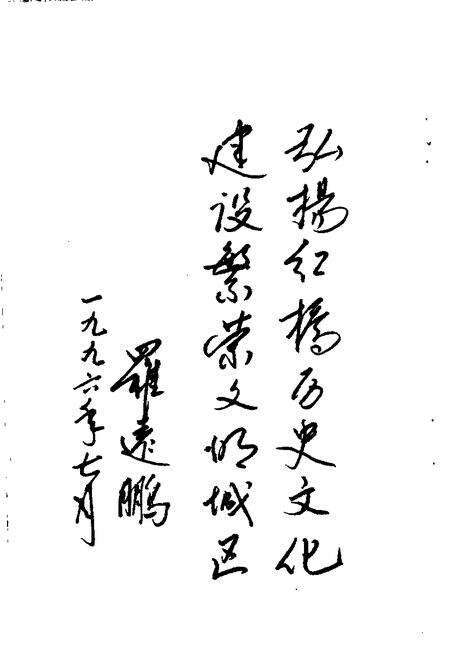 弘揚红橋历史文化
建设繁荣文明城区
羅遠鵬
一九九六年七月